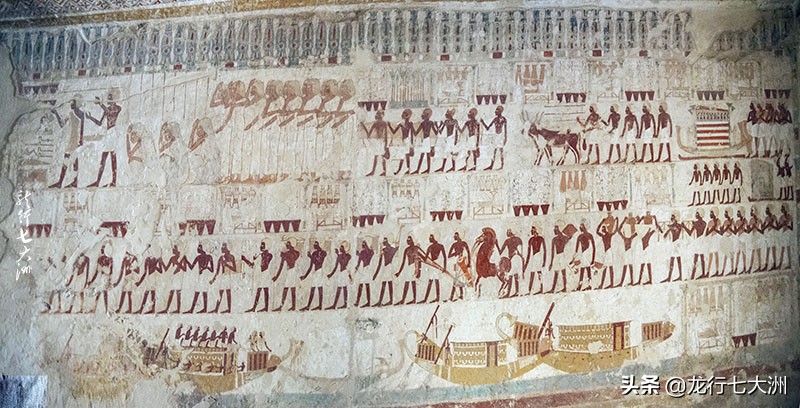 龙行七大洲
头条 @龙行七大洲